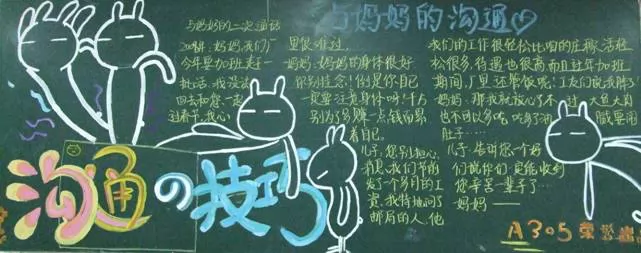 与妈妈的沟通
与妈妈的一次通话
2008年,妈妈,我们厂
今年要加班,未一
批活,我没法
回去和您一起
过春节,我心
里很难过。
妈妈:妈妈的身体很好
你别挂念!倒是你自己
一定要注意身体呀!千万
别为了多赚一点钱而累
着自己。
儿子:您别担心,
我是,我们年前
发了一个多月的工
资,我特地问了
邮局的人,他
我们的工作很轻松比咱的庄稼活轻
松很多,待遇也很高而且过年加班
期间,厂里还帮饭呢!工友们说我胖了
妈妈:那我就放心了不过,大鱼大肉
也不可以多吃,吃多了油腻要闹
肚子……
儿子:告诉您一个好
们说你们一定能收到
您辛苦一辈子了…
妈妈——
沟通の技巧
A305荣誉出